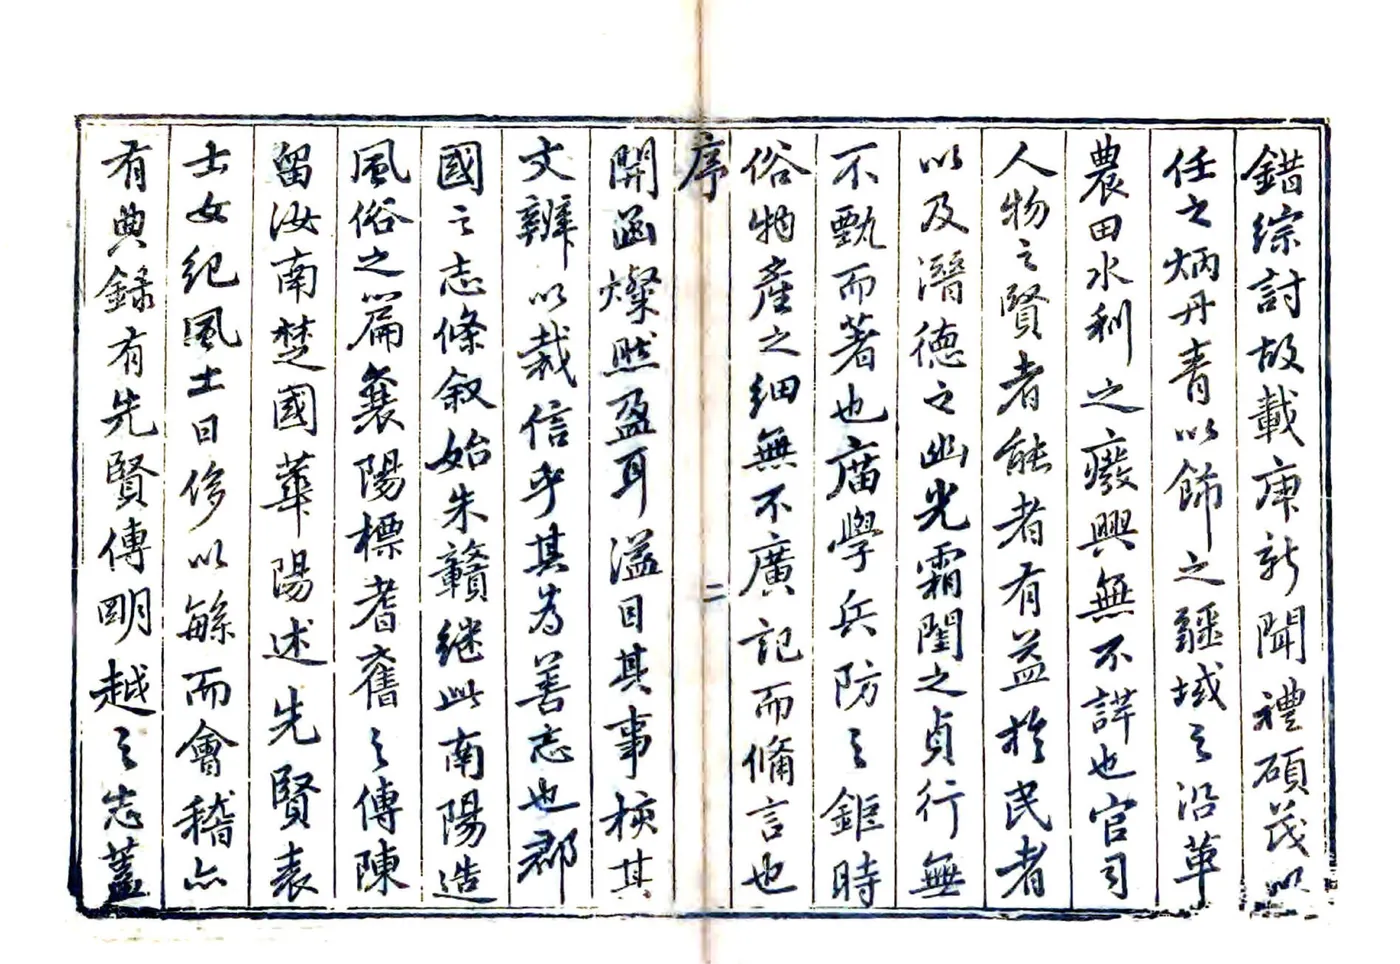 錯綜討故載庚新聞禮碩茂以
任之炳丹青以飾之疆域之沿革
農田水利之癈興無不詳也官司
人物之賢者能者有益於民者
以及潛德之幽光霜閨之貞行無
不甄而著也庿學兵防之鉅時
俗物產之細無不廣記而備言也
序
二
開函燦然盈耳溢目其事核其
文辨以裁信乎其為善志也郡
國之志條叙始朱贛继此南陽造
風俗之篇襄陽標耆舊之傳陳
留汝南楚國華陽述先賢表
士女紀風土日侈以緐而會稽亦
有典録有先賢傳朙越之志蓋